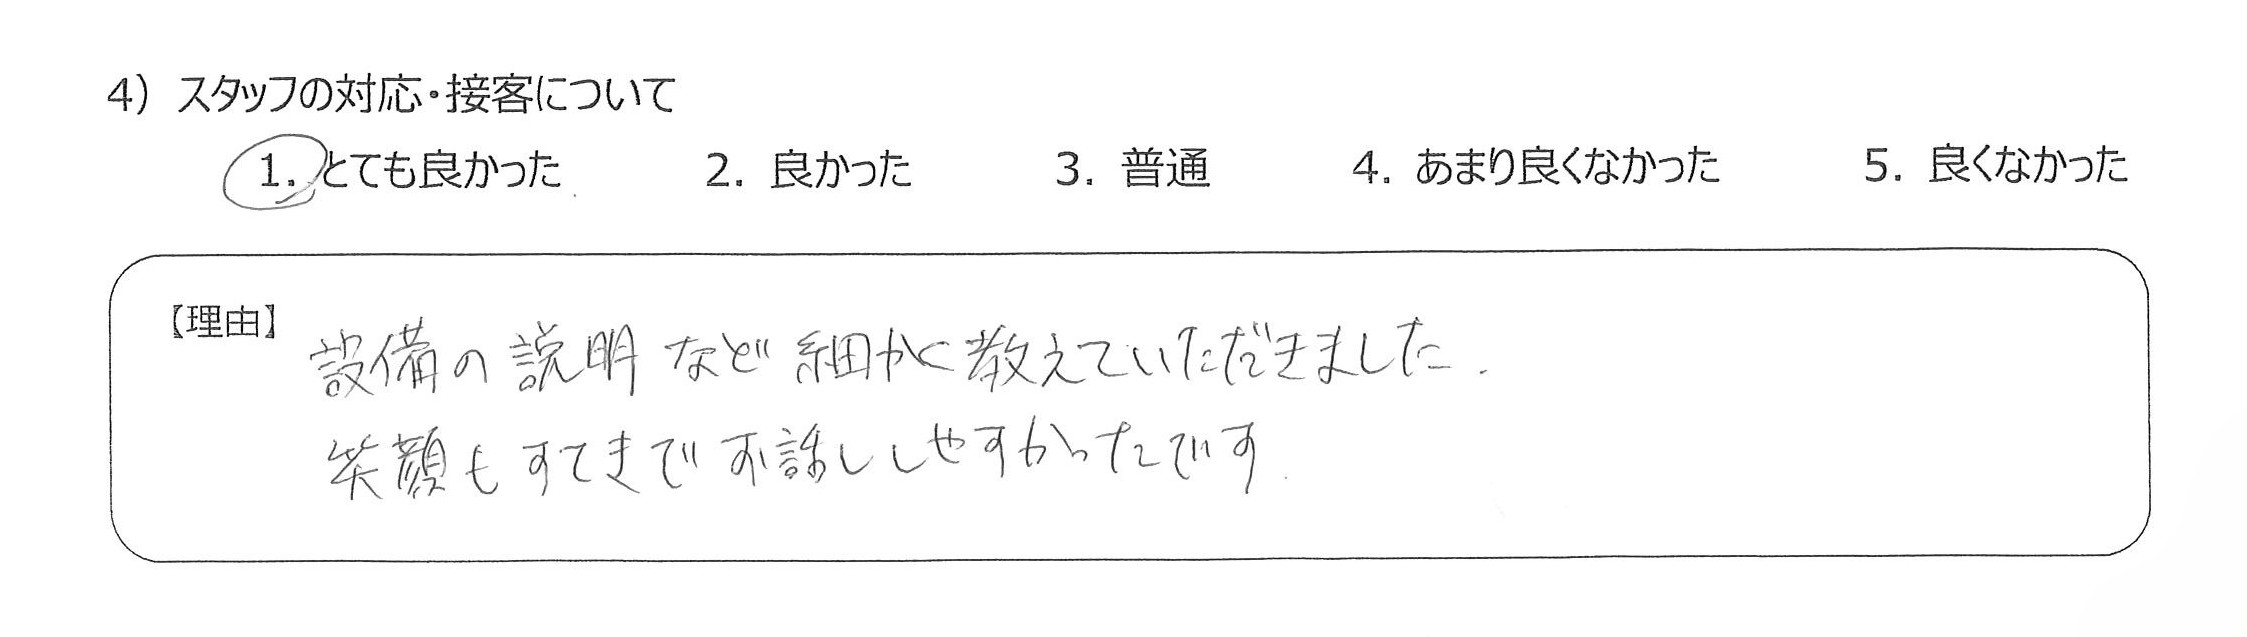 4) スタッフの対応・接客について
1. とても良かった 2. 良かった 3. 普通 4. あまり良くなかった 5. 良くなかった
【理由】
設備の説明など細かく教えていただきました.
笑顔もすてきでお話ししやすかったです